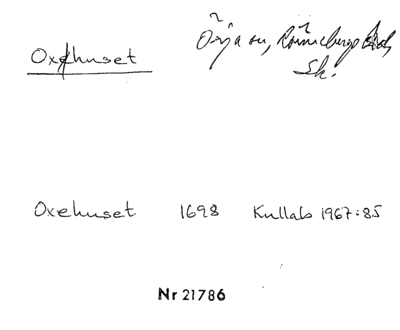 Oxehuset
Örja sn, Rönnebergs hd,
Sk.
Oxehuset 1698 Kullab 1967:85
Nr 21786